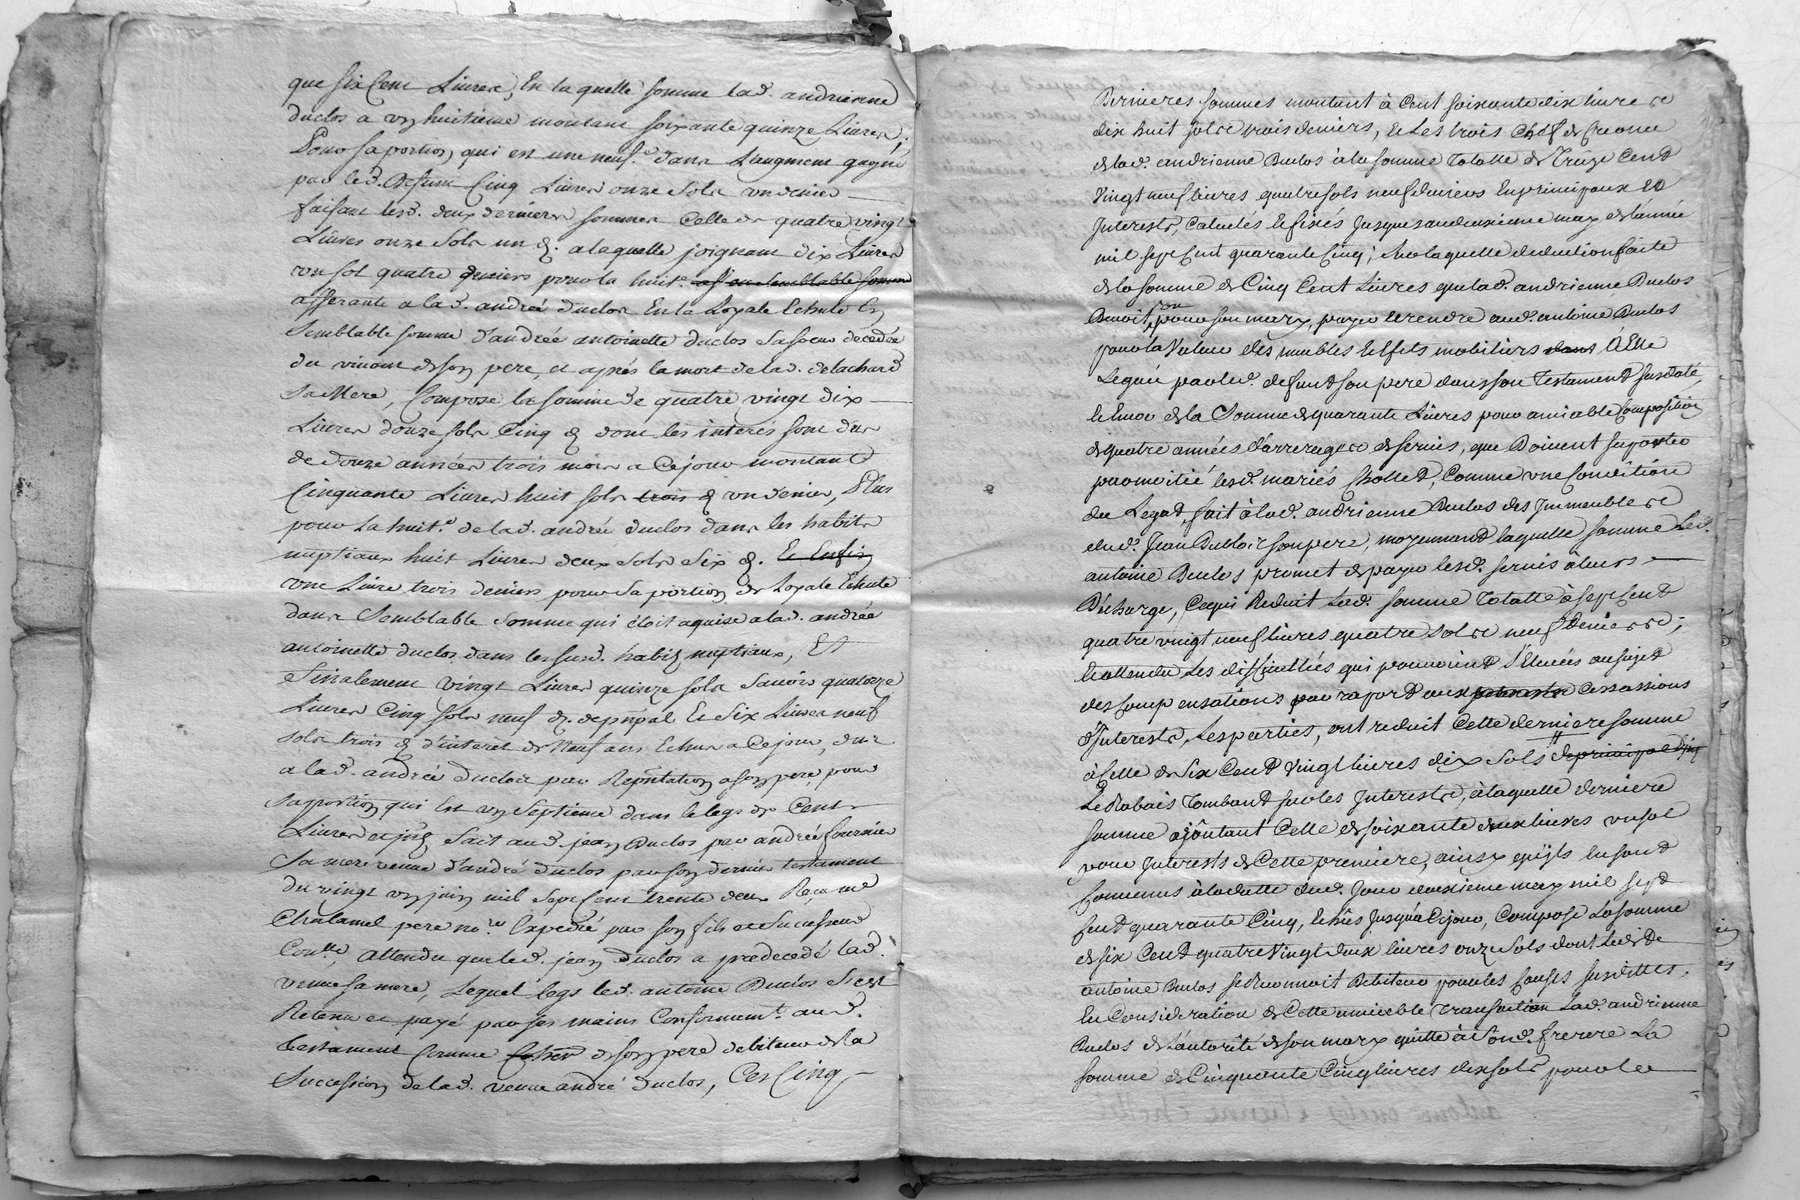 que six Cent Livres, En laquelle somme lad. andrienne
duclos a un huitieme montant soixante quinze Livres,
Pour sa portion, qui est une neuf.e dans L'augment gagné
par led. defunt Cinq Livres onze sols un denier
faisant lesd. deux dernieres sommes Celle de quatre vingt
Livres onze sols un d. a laquelle joignant dix Livres
un sol quatre deniers pour la huit.e semblable somme
afferante a lad. andrée duclos En la Loyale Echute En
Semblable somme d'andrée antoinette duclos sa soeur decedée
du vivant de son pere, et aprés la mort de lad. delachard
sa Mere, Compose la somme de quatre vingt dix
Livres douze sols Cinq d dont les interes sont dus
de douze années trois mois a Ce jour montant
Cinquante Livres huit sols trois d un denier, Plus
pour la huit.e de lad. andrée duclos dans les habits
nuptiaux huit Livres deux sols six d. Et Enfin
une Livre trois deniers pour sa portion de Loyale Echute
dans semblable somme qui étoit aquise a lad. andrée
antoinette duclos dans les susd. habits nuptiaux, Et
Finalement vingt Livres quinze sols Savoir quatorze
Livres Cinq sols neuf d. de pñpal Et Six Livres neuf
sols trois d d'interet de Neuf ans Echus a Ce jour, dus
a lad. andrée duclos par Repñtation a son pere, pour
sa portion qui Est un Septieme dans le legs de Cent
Livres fait aud. jean Duclos par andrée fournier
sa mere veuve d'andré duclos par son dernier testament
du vingt un juin mil sept Cent trente deux Reçu me
Chalamel pere no.re Expedié par son fils et Successeur
attendu que led. jean duclos a predecedé lad.
veuve sa mere, Lequel legs led. antoine Duclos s'est
Retenu et payé par ses mains Conformem.t aud.
testament Comme de son pere debiteur de la
Succession de lad. veuve andré duclos, Ces Cinq
Dernieres sommes montant à Cent soixante dix livres
dix huit sols trois deniers, et Les trois Chefs de Creance
de lad. andrienne Duclos à la somme Totalle de Treize Cent
Vingt neuf livres quatre sols neuf deniers En principaux Et
Interests, Calculés et fixés Jusques au deuxieme may de l'année
mil sept Cent quarante Cinq; Sur laquelle deduction faite
de la somme de Cinq Cent Livres que lad. andrienne Duclos
Devoit ou pour son mary, payer et rendre aud. antoine Duclos
pour la Valeur des meubles et Effets mobiliers dans À Elle
Legués par led. defunt son pere dans son Testament susdaté,
Encor de la Somme de quarante Livres pour amiable Composition
de quatre années d'arrerages de servis, que Doivent suporter
par moitié lesd. mariés Chollet, Comme une Condition
du Legat fait à lad. andrienne Duclos des Immeubles
dud. Jean Duclos son pere, moyennant laquelle somme Led.
antoine Duclos promet de payer lesd. servis à leurs
Décharge, Ce qui Reduit Lad. somme Totalle à sept Cent
quatre vingt neuf livres quatre sols neuf Deniers;
Et attendu Les difficultés qui pourroient s'Elevées au sujet
des Compensations par raport aux Cessassions
d'Interests, Les parties, ont reduit Cette derniere somme
à Celle de Six Cent Vingt livres dix Sols de principal
Le Rabais Tombant sur les Interests, à laquelle derniere
somme ajoutant Celle de soixante deux livres un sol
pour Interests de Cette premiere, ainsy qu'ils En sont
Convenus à la datte dud. Jour deuxieme may mil sept
Cent quarante Cinq, Echûs Jusqu'à Ce jour, Compose La somme
de six Cent quatre Vingt deux livres onze sols dont Led.
antoine Duclos se Reconnoit Debiteur pour les Causes susdittes.
En Consideration de Cette amiable Transaction Lad. andrienne
Duclos de L'autorité de son mary quitte à sond. frerere La
somme de Cinquante Cinq livres dix sols pour le